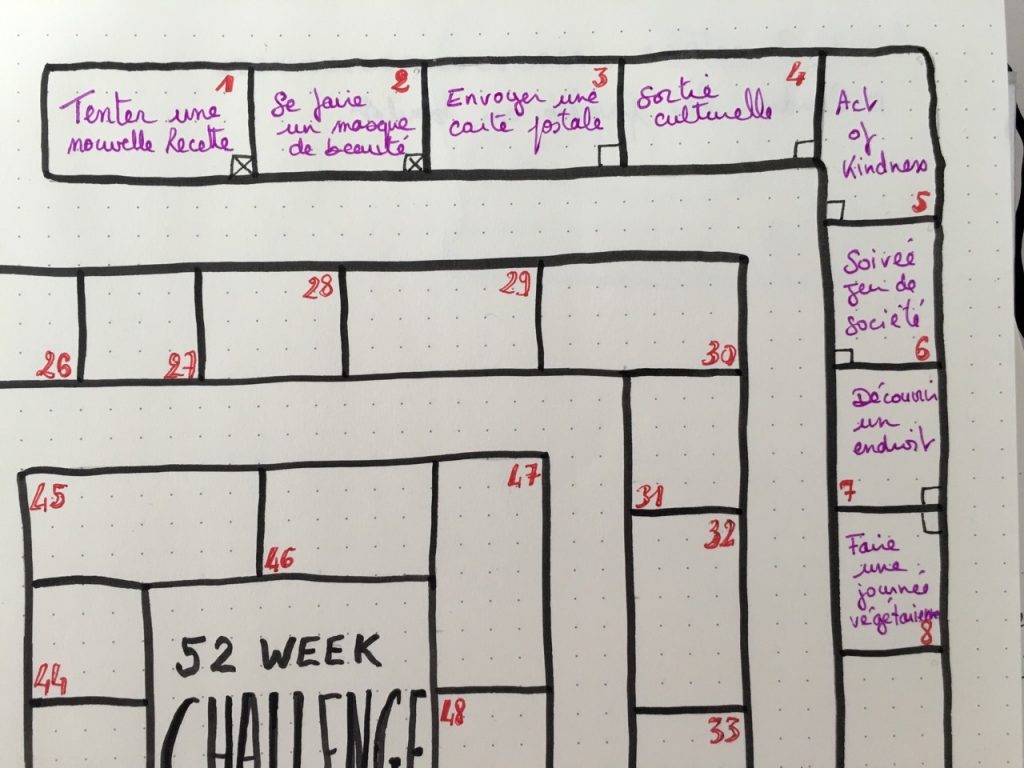 1
Tenter une
nouvelle Recette
2
Se faire
un masque
de beauté
3
Envoyer une
carte postale
4
Sortie
culturelle
Act
of
Kindness
5
Soirée
jeu de
société
6
Découvrir
un
endroit
7
Faire
une
journée
végétarienne
8
26
27
28
29
30
31
32
33
44
45
46
47
48
52 WEEK
CHALLENGE